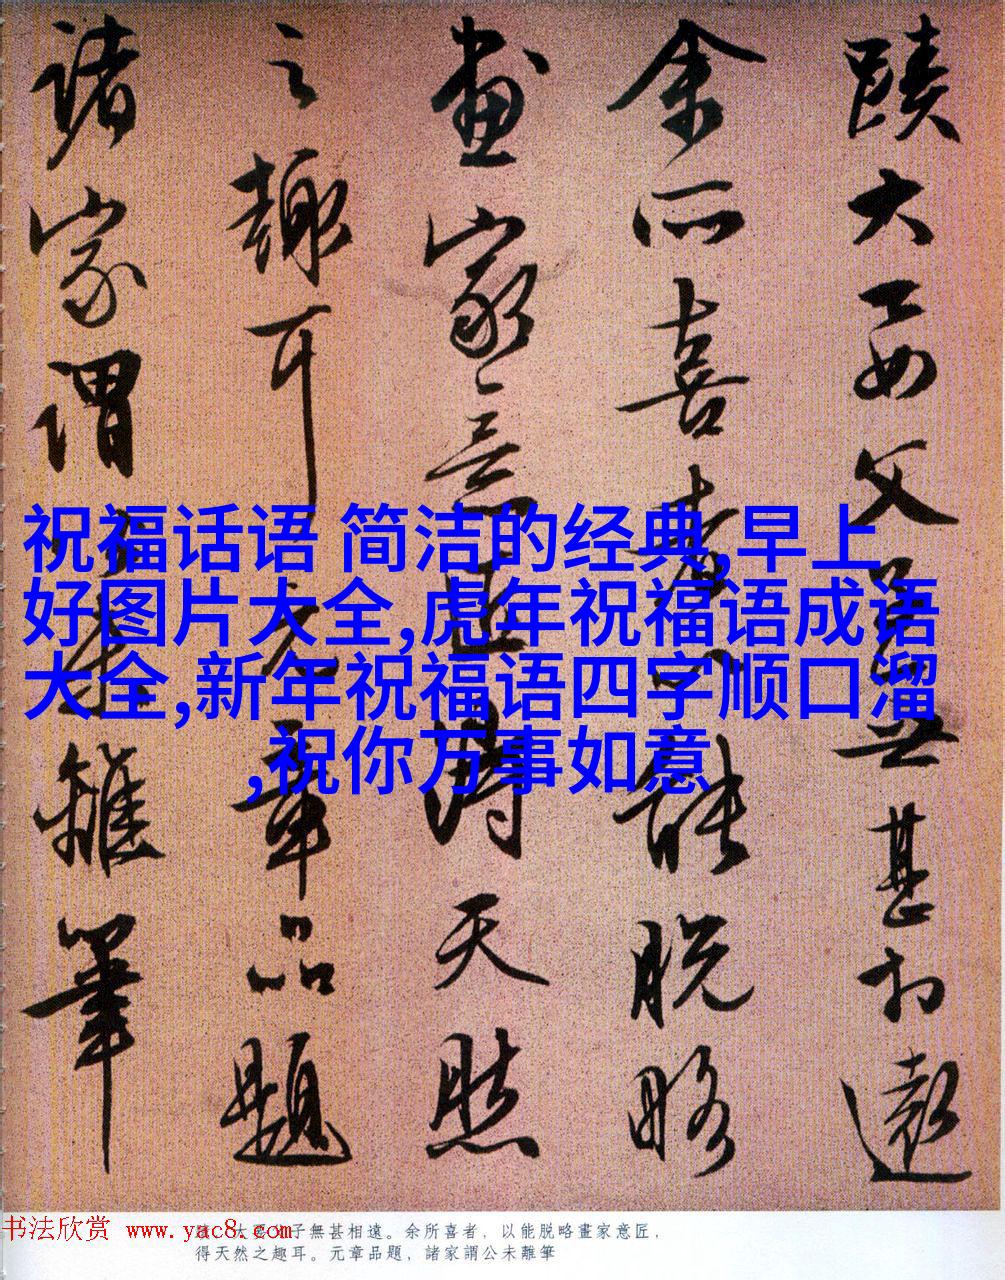 蹟大要父子無甚相遠
余所喜者以能脱略
畫家意匠得天然
之趣耳元章品題
諸家謂公未離筆
祝福话语 简洁的经典,早上
好图片大全,虎年祝福语成语
大全,新年祝福语四字顺口溜
,祝你万事如意
书法欣赏 www.yac8.com
大要父子無甚相遠。余所喜者，以能脱略畫家意匠，
得天然之趣耳。元章品題，諸家謂公未離筆